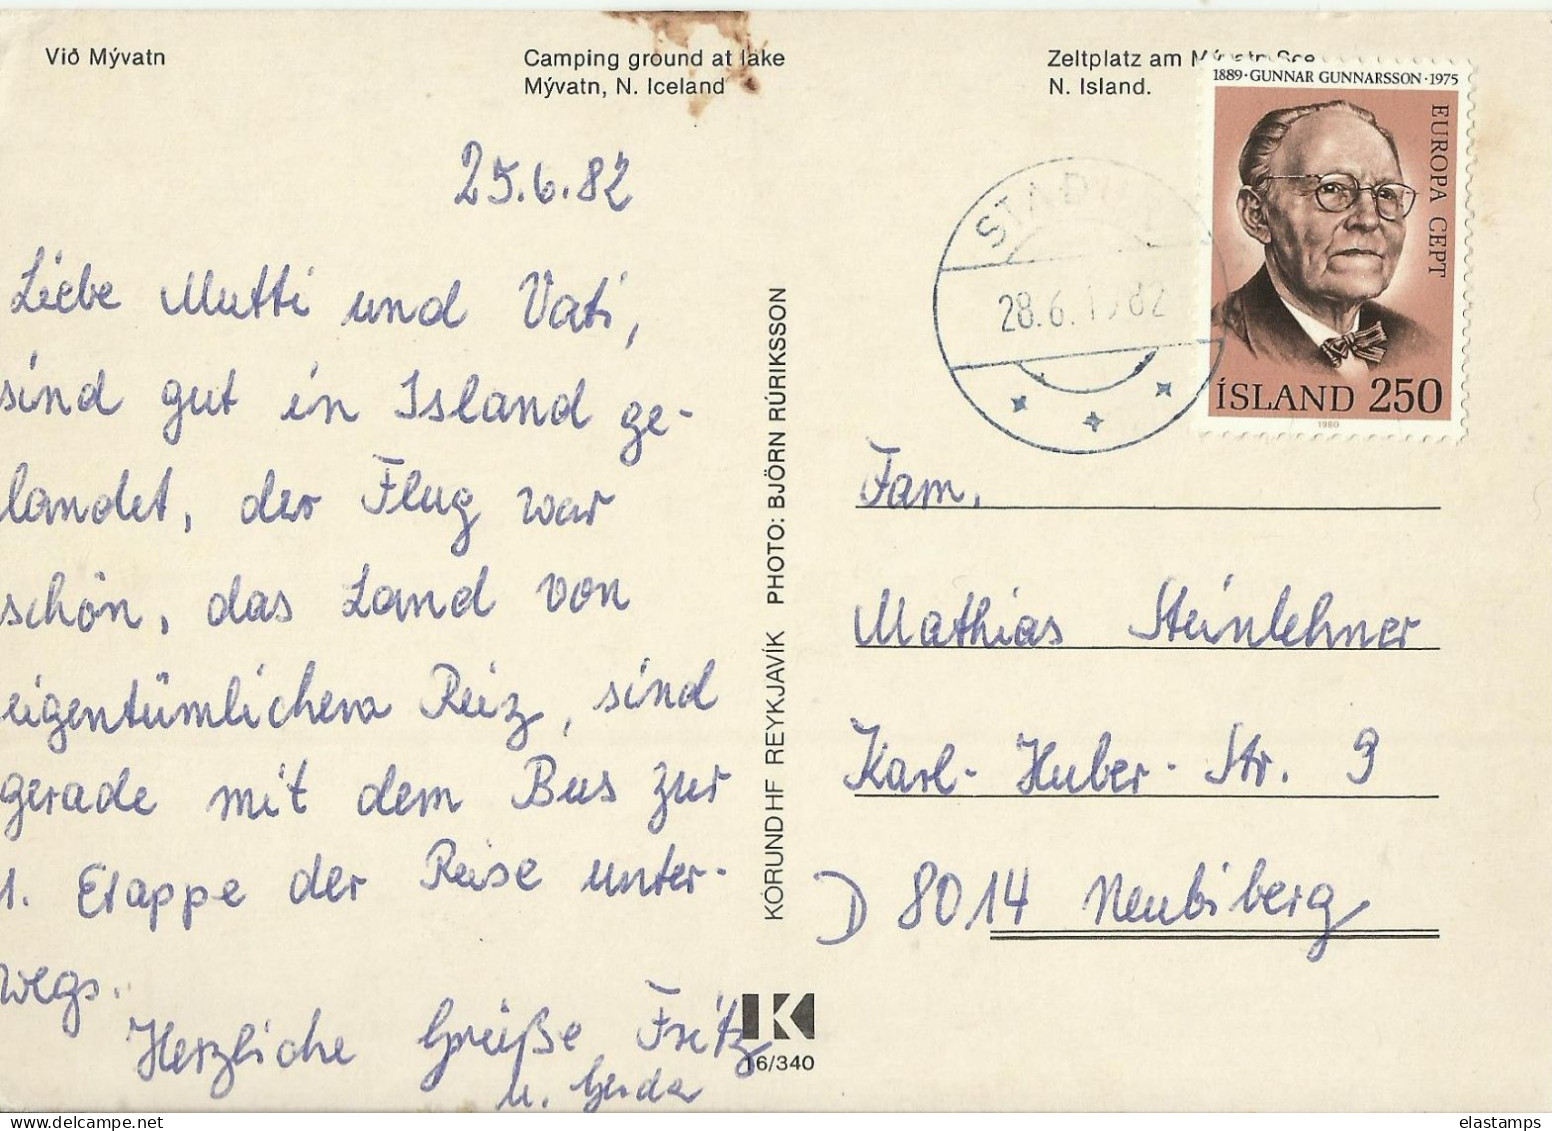 Við Mývatn
Camping ground at lake
Mývatn, N. Iceland
Zeltplatz am Mývatn See
N. Island.
1889·GUNNAR GUNNARSSON·1975
EUROPA CEPT
ÍSLAND 250
1980
28.6.1982
25.6.82
Liebe Mutti und Vati,
sind gut in Island ge-
landet, der Flug war
schön, das Land von
eigentümlichem Reiz, sind
gerade mit dem Bus zur
1. Etappe der Reise unter-
wegs.
Herzliche Grüße Fritz
u. Gerda
KÓRUND HF REYKJAVÍK PHOTO: BJÖRN RÚRIKSSON
Fam.
Mathias Steinlehner
Karl-Huber-Str. 9
D 8014 Neubiberg
K
16/340
elastamps